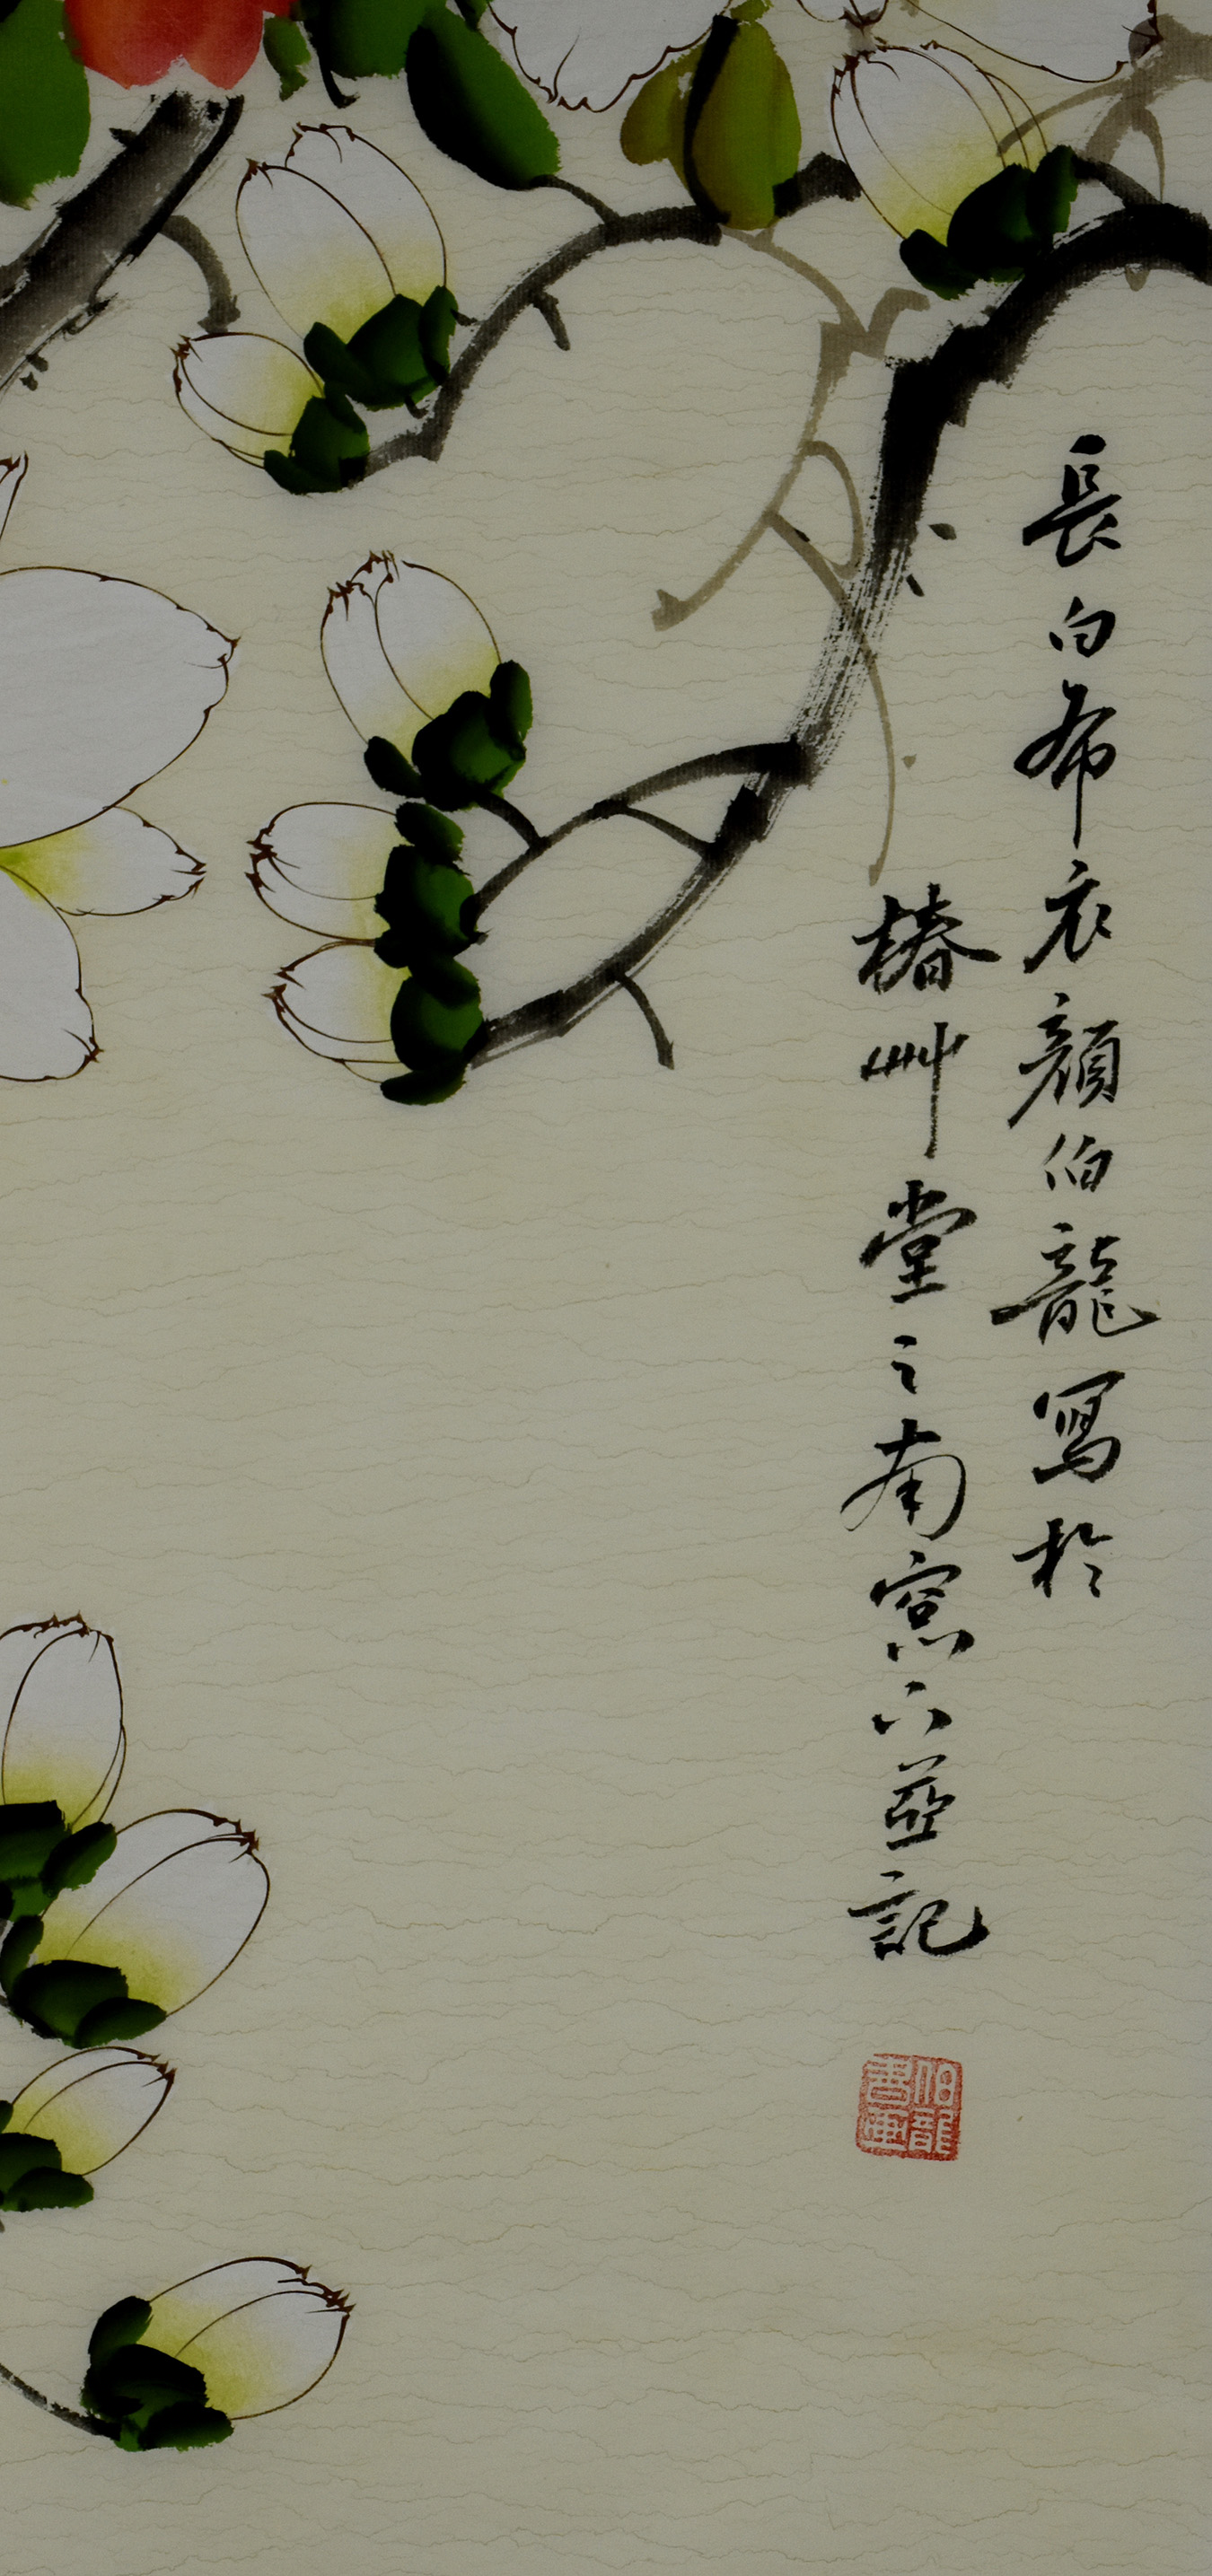 長白布衣顏伯龍寫於
椿艸堂之南窓下並記
伯龍書畫